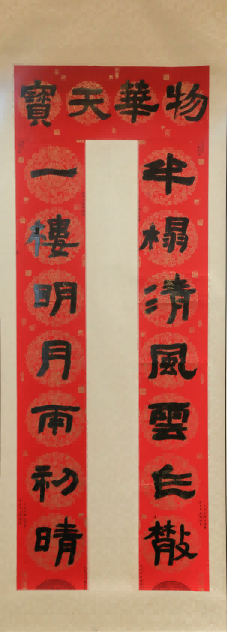 物華天寶
半榻清風雲乍散
一樓明月雨初晴